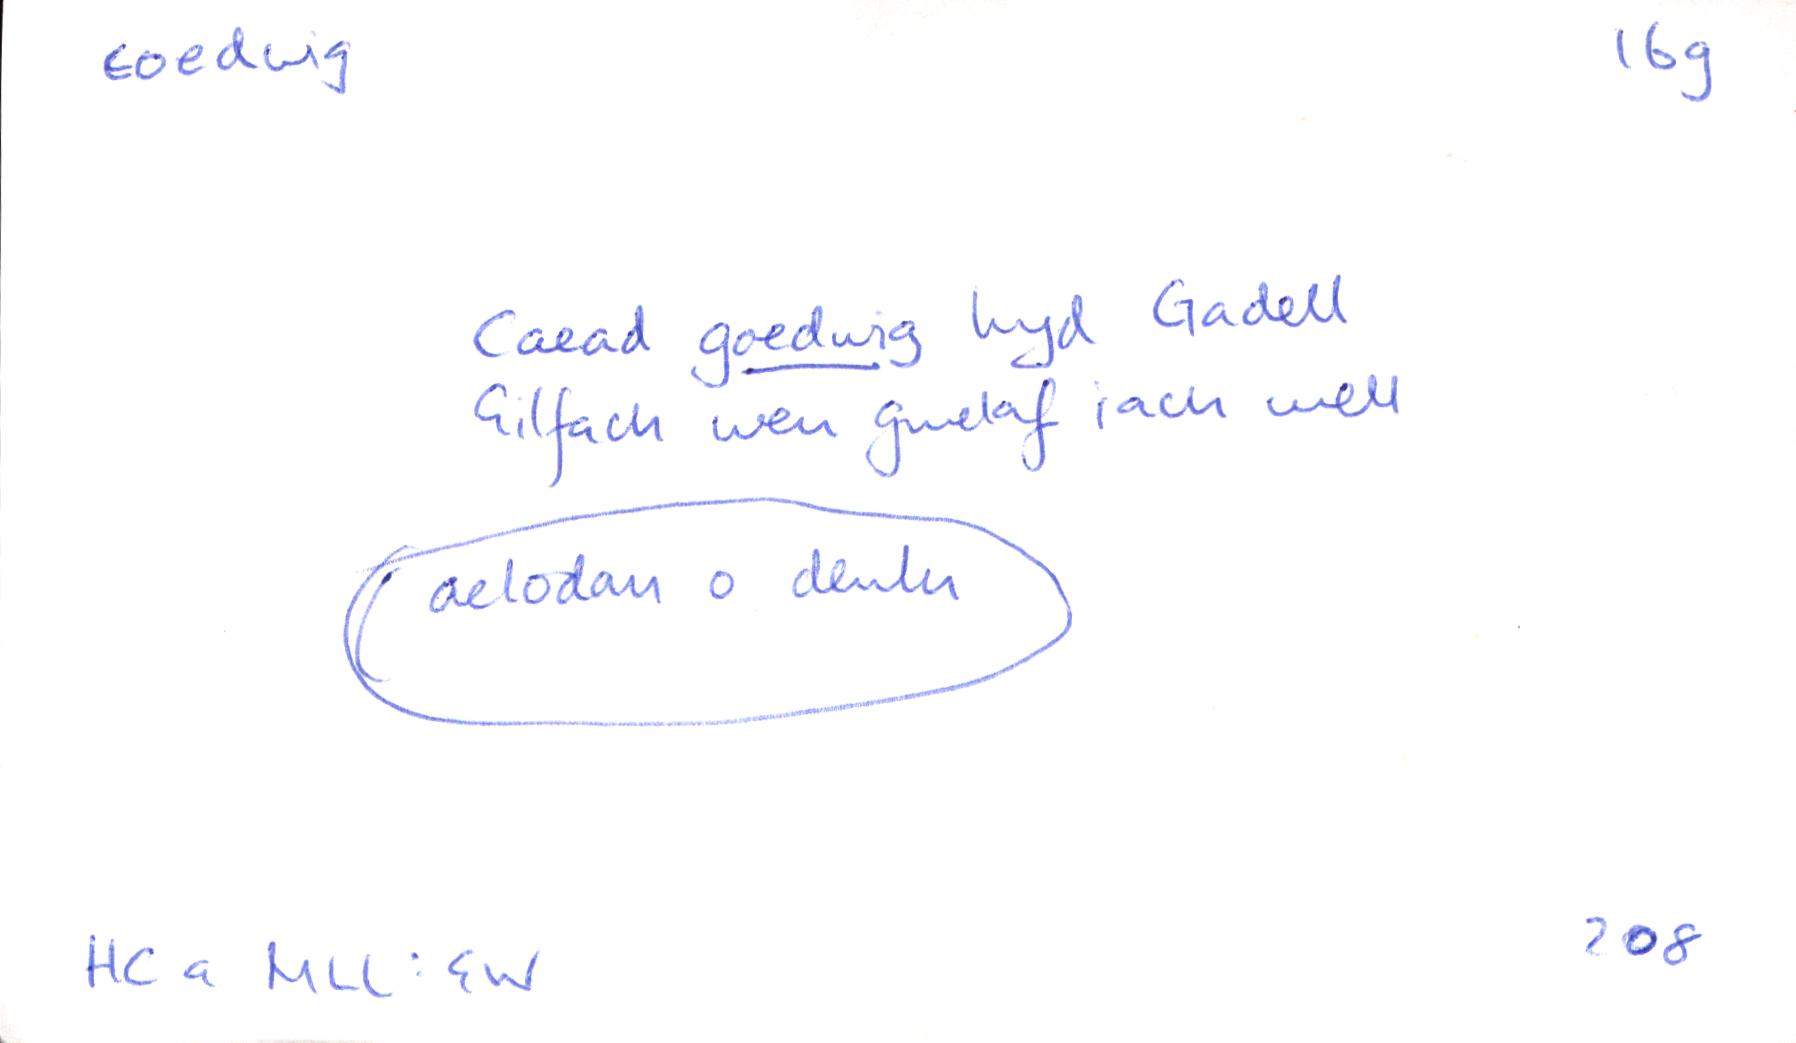 coedwig 16g
Caead goedwig hyd Gadell
Gilfach wen gwelaf iach well
aelodau o deulu
HC a MLL: GW 208